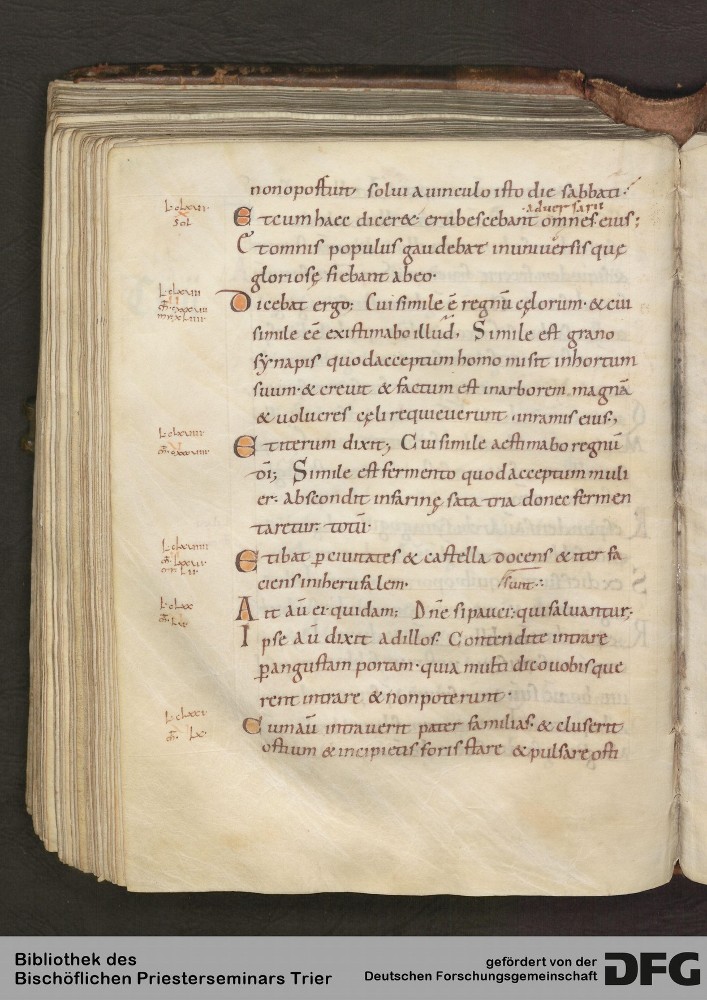 non oportuit, solui a uinculo isto die sabbati.
aduersarii
Et cum haec diceret erubescebant omnes eius;
Et omnis populus gaudebat in uniuersis que
gloriosę fiebant ab eo.
Dicebat ergo; Cui simile ē regnū cęlorum. & cui
simile eē existimabo illud, Simile est grano
synapis quod acceptum homo misit in hortum
suum. & creuit & factum est in arborem magnā
& uolucres cęli requieuerunt in ramis eius,
Et iterum dixit; Cui simile aestimabo regnū
dī; Simile est fermento quod acceptum muli
er. abscondit in farinę sata tria donec fermen
taretur totū.
Et ibat p ciuitates & castella docens & iter fa
ciens in iherusalem.
sunt
Ait aū ei quidam; Dn̄e si pauci qui saluantur;
Ipse aū dixit ad illos. Contendite intrare
p angustam portam. quia multi dico uobis que
rent intrare & non poterunt.
Cum aū intrauerit pater familias. & cluserit
ostium & incipietis foris stare & pulsare osti
Bibliothek des
Bischöflichen Priesterseminars Trier
gefördert von der
Deutschen Forschungsgemeinschaft
DFG